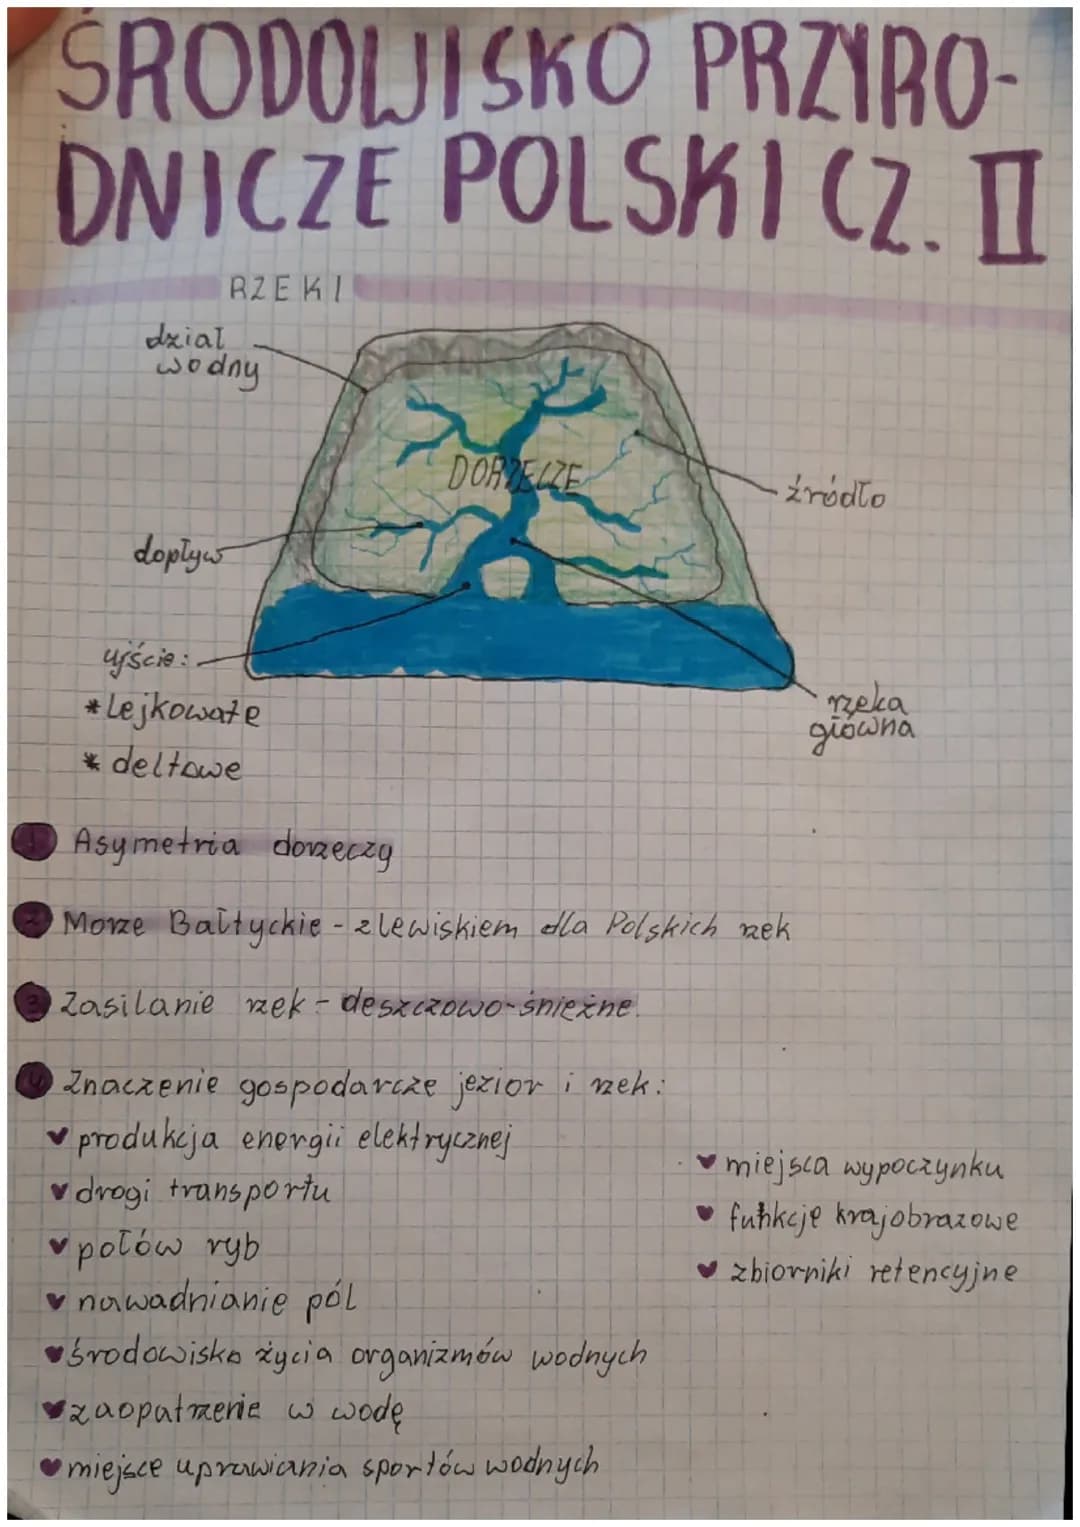 ŚRODOWISKO PRZYRO-
DNICZE POLSKI CZ. II
RZEKI
dział
wodny
DORZECZE
źródło
dopływ
ujście:
* Lejkowate
* deltowe
rzeka
główna
1 Asymetria dorzeczy
2 Morze Bałtyckie - zlewiskiem dla Polskich rzek
3 Zasilanie rzek - deszczowo-śnieżne.
4 Znaczenie gospodarcze jezior i rzek:
♥ produkcja energii elektrycznej
♥ drogi transportu
♥ połów ryb
♥ nawadnianie pól
♥ środowisko życia organizmów wodnych
♥ zaopatrzenie w wodę
♥ miejsce uprawiania sportów wodnych
♥ miejsca wypoczynku
♥ funkcje krajobrazowe
♥ zbiorniki retencyjne